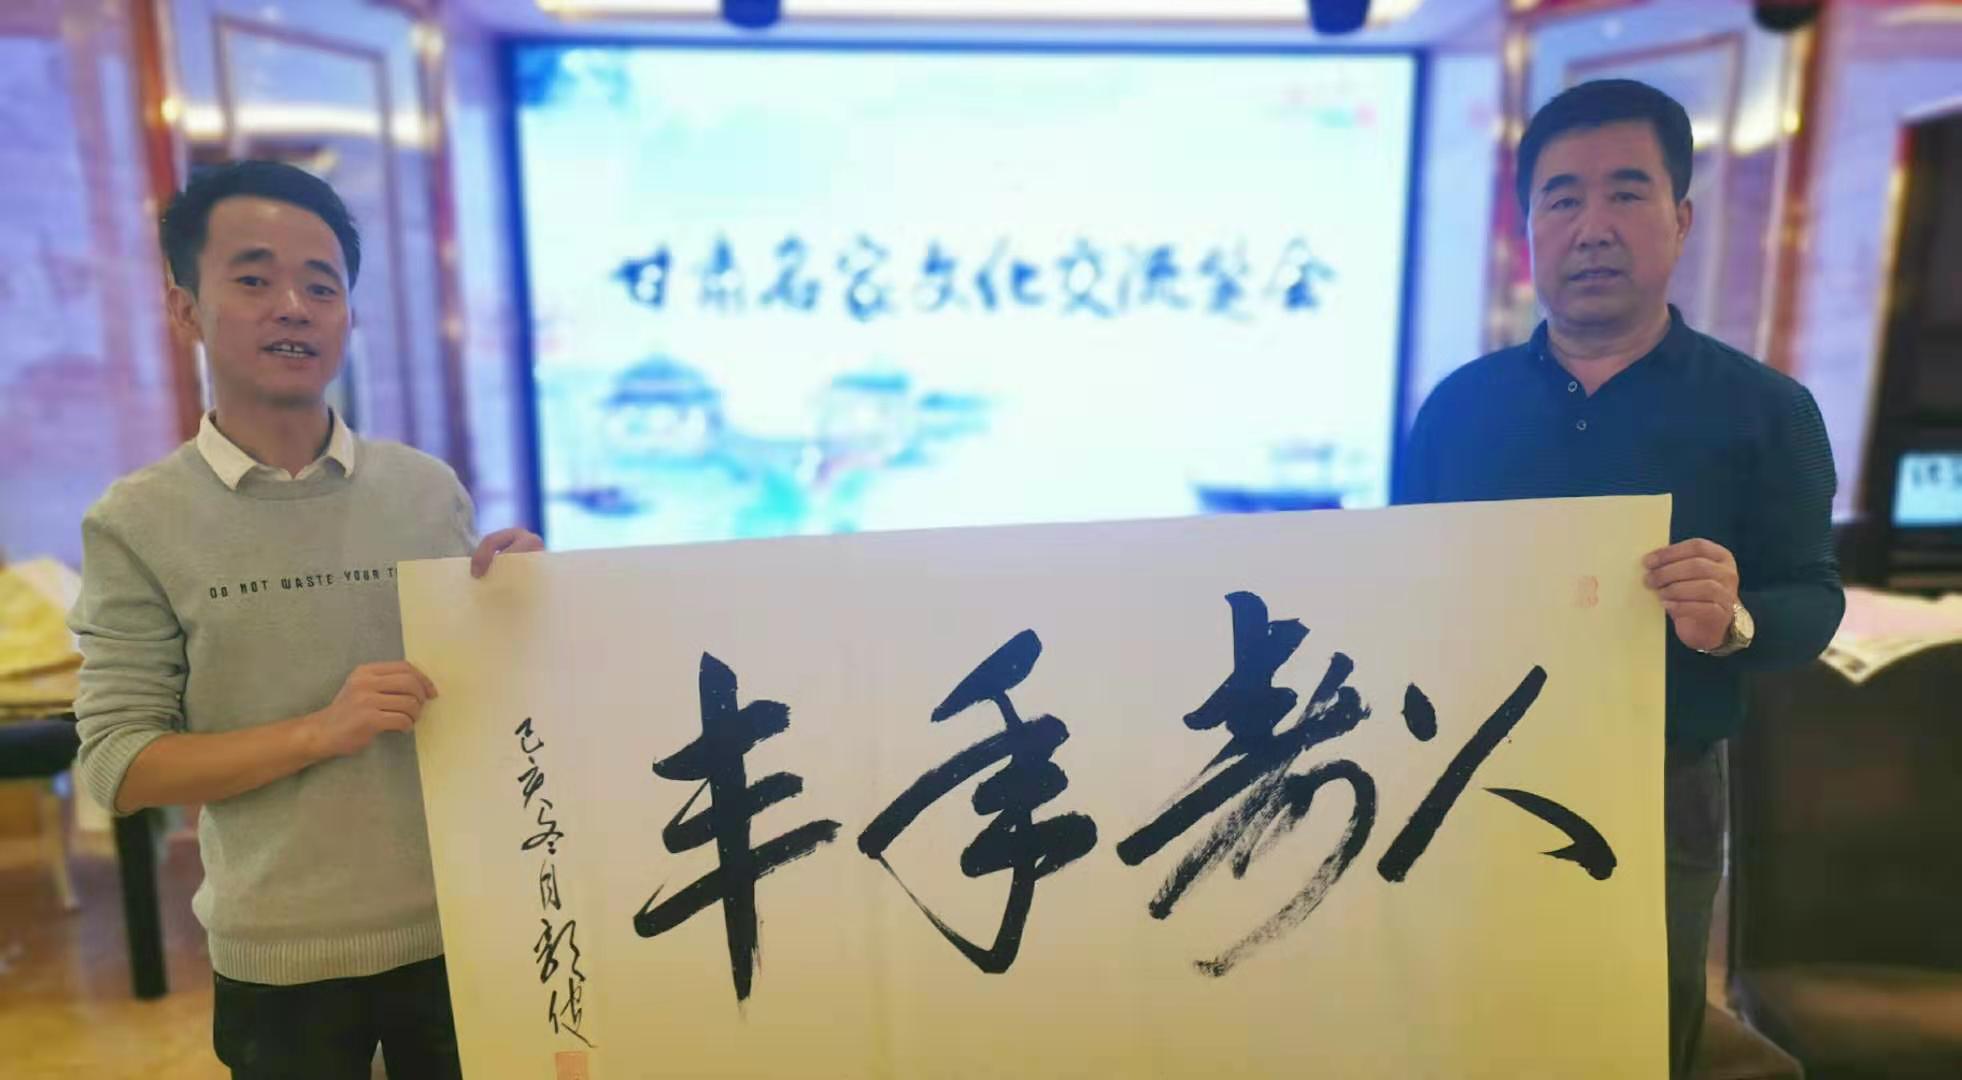 甘肃名家文化交流笔会
DO NOT WASTE YOUR
人寿年丰
己亥冬月